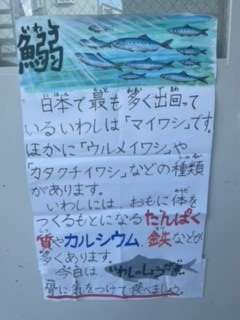 鰯
いわし
日本で最も多く出回って
いるいわしは「マイワシ」です。
ほかに「ウルメイワシ」や
「カタクチイワシ」などの種類
があります。
いわしには、おもに体を
つくるもとになるたんぱく
質やカルシウム、鉄などが
多くあります。
今日は、いわしのしょうが煮
骨に気をつけて食べましょう。